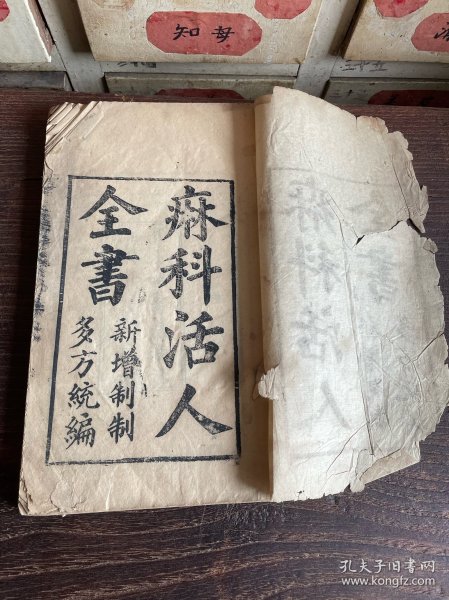 知母
痳科活人
全書
新增制制
多方統編
孔夫子旧书网
www.kongfz.com